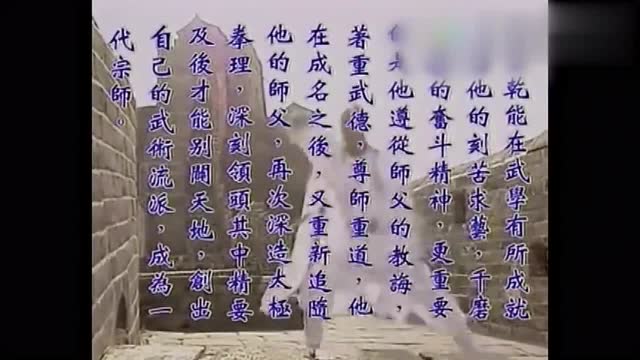 乾能在武學有所成就
他的刻苦求藝，千磨
的奮斗精神，更重要
是他遵從師父的教誨，
著重武德，尊師重道，他
在成名之後，又重新追隨
他的師父，再次深造太極
拳理，深刻領頭其中精要
及後才能別闢天地，創出
自己的武術流派，成為一
代宗師。